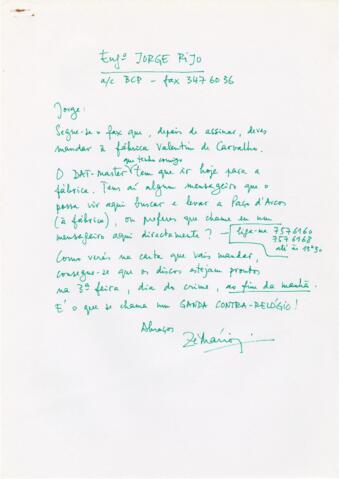 Engº JORGE RIJO
a/c BCP - fax 347 60 36
Jorge:
Segue-se o fax que, depois de assinar, deves
mandar à fábrica Valentim de Carvalho.
que tenho comigo
O DAT-master tem que ir hoje para a
fábrica. Tens aí algum mensageiro que o
possa vir aqui buscar e levar a Paço d'Arcos
(à fábrica), ou preferes que chame eu um
mensageiro aqui directamente? - liga-me 757 61 60
757 61 68
até às 12h30
Como verás na carta que vais mandar,
consegue-se que os discos estejam prontos
na 3ª feira, dia do crime, ao fim da manhã.
E' o que se chama um GANDA CONTRA-RELÓGIO!
Abraços
Zé Mário